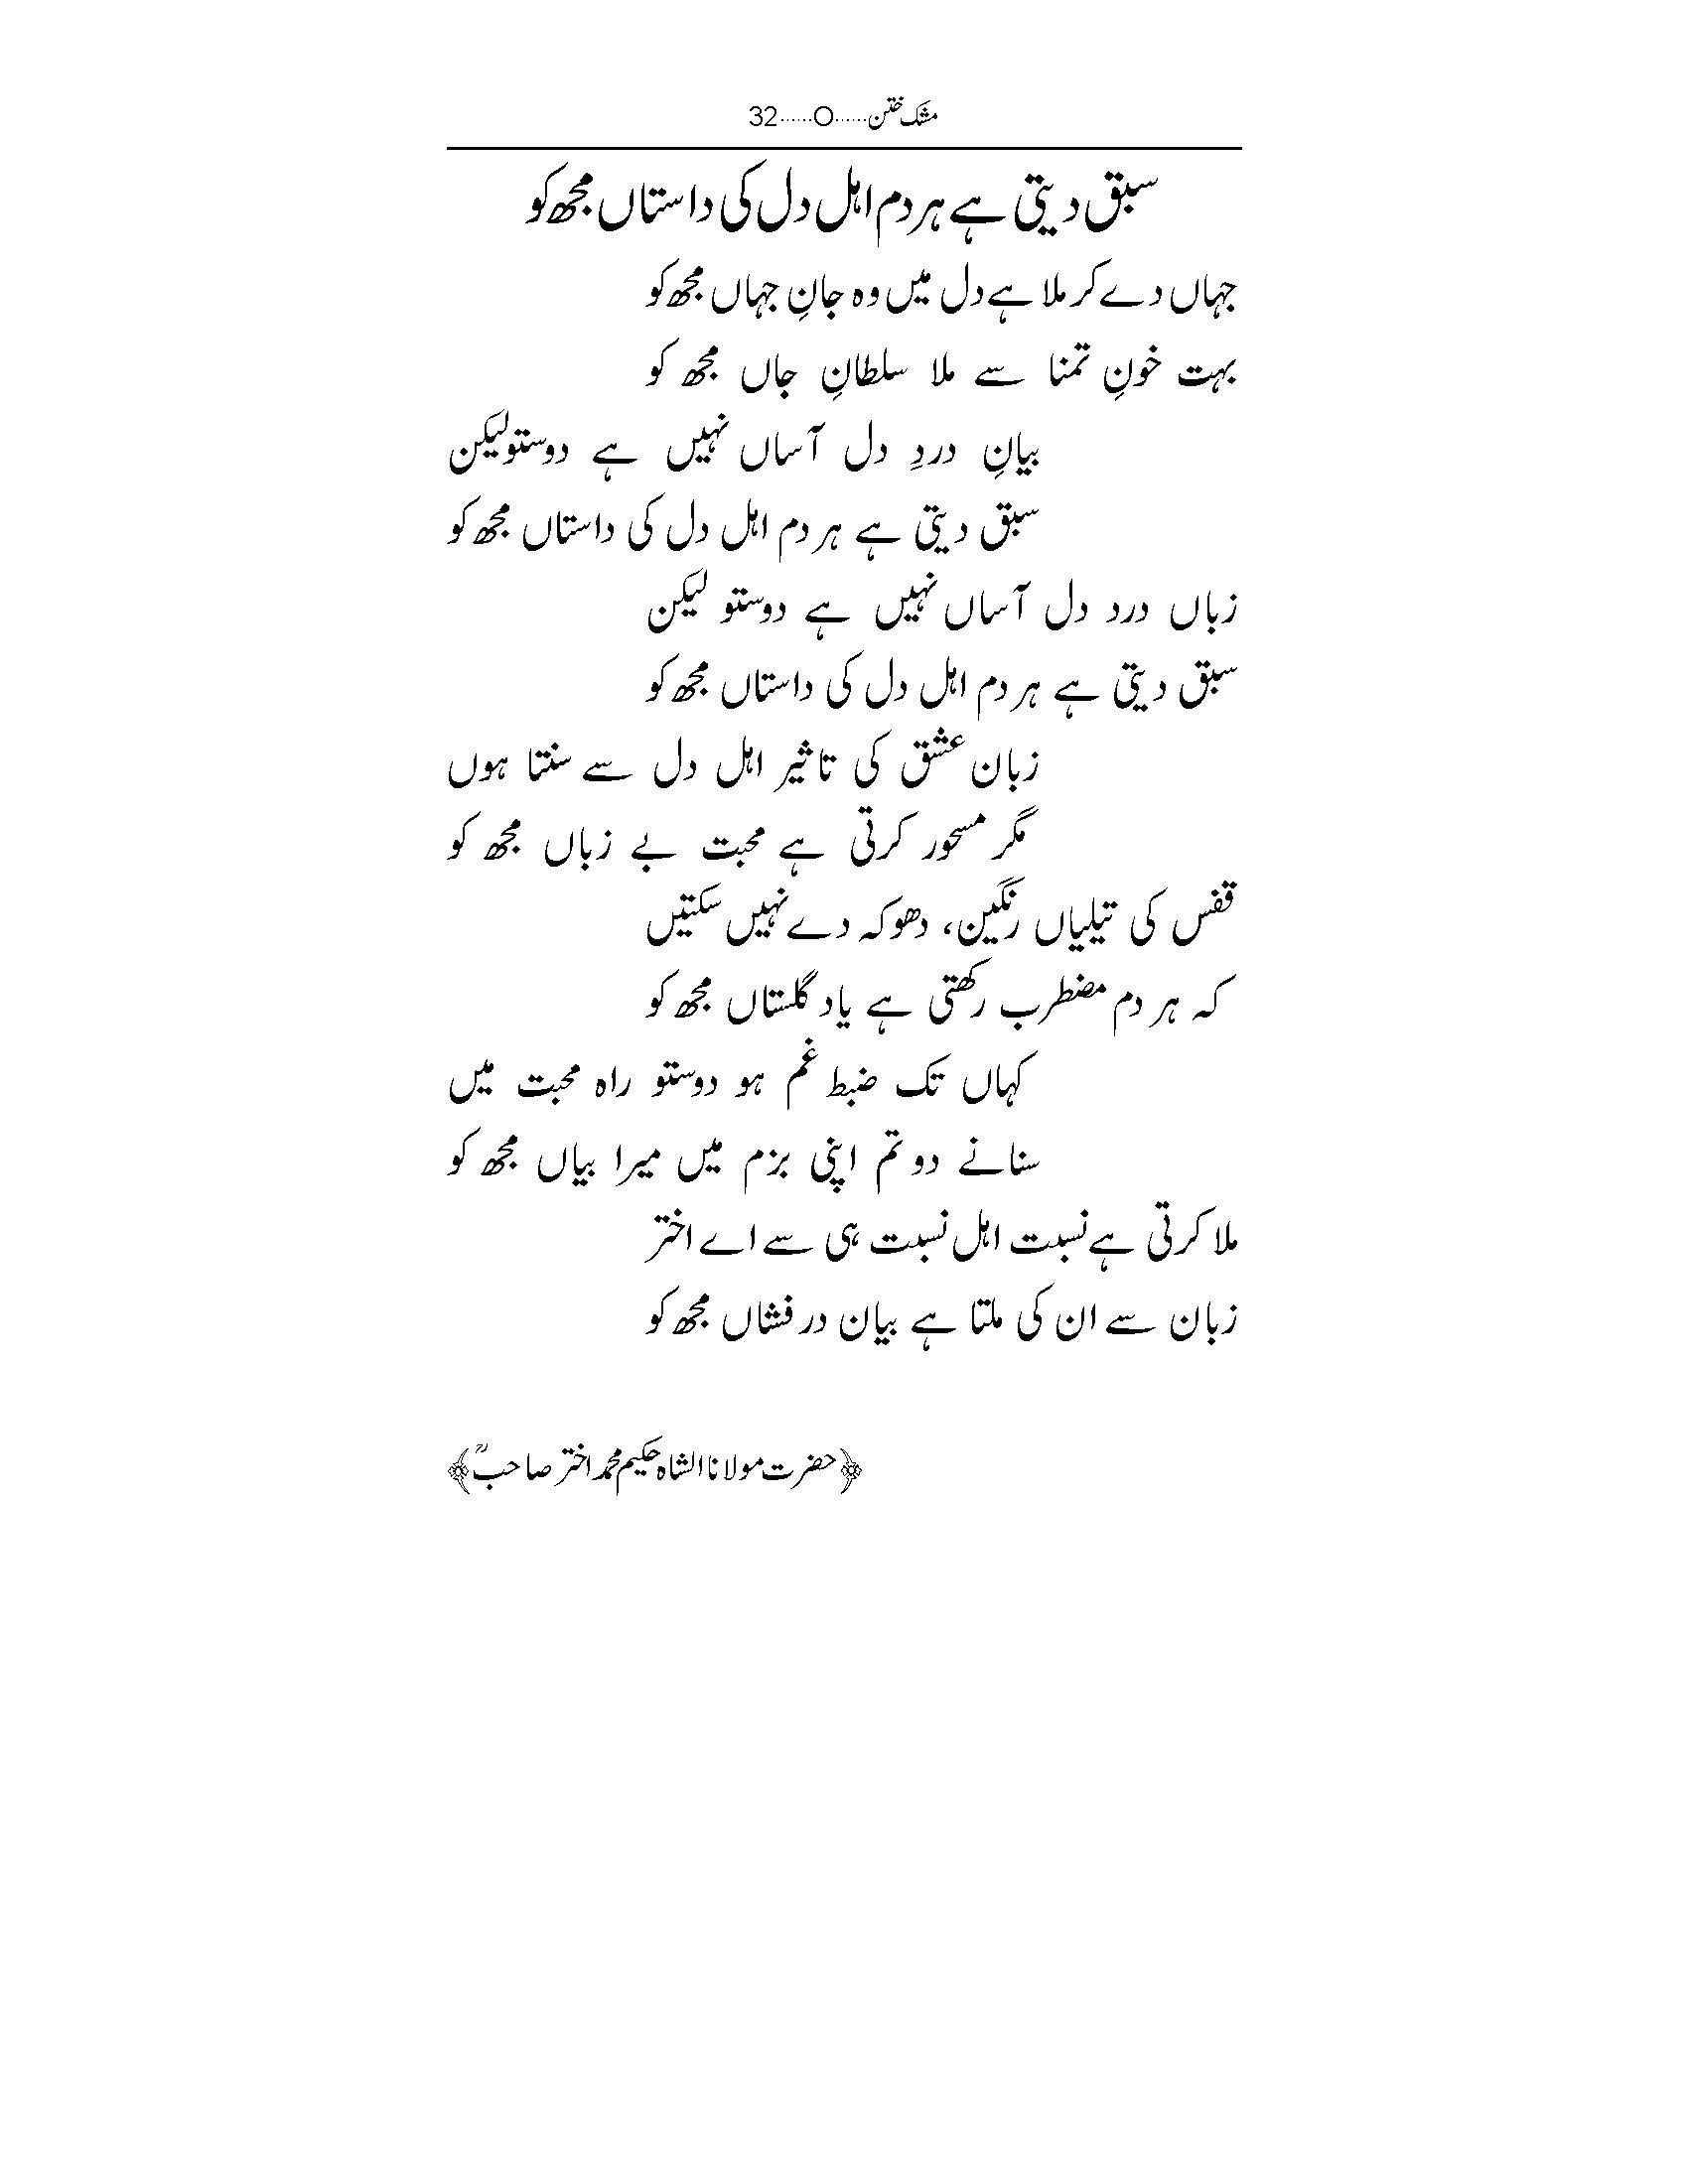 مشک ختن......O......32
سبق دیتی ہے ہر دم اہل دل کی داستاں مجھ کو
جہاں دے کر ملا ہے دل میں وہ جانِ جہاں مجھ کو
بہت خونِ تمنا سے ملا سلطانِ جاں مجھ کو
بیانِ دردِ دل آساں نہیں ہے دوستو لیکن
سبق دیتی ہے ہر دم اہل دل کی داستاں مجھ کو
زباں درد دل آساں نہیں ہے دوستو لیکن
سبق دیتی ہے ہر دم اہل دل کی داستاں مجھ کو
زبان عشق کی تاثیر اہل دل سے سنتا ہوں
مگر مسحور کرتی ہے محبت بے زباں مجھ کو
قفس کی تیلیاں رنگین، دھوکہ دے نہیں سکتیں
کہ ہر دم مضطرب رکھتی ہے یاد گلستاں مجھ کو
کہاں تک ضبط غم ہو دوستو راہ محبت میں
سنانے دو تم اپنی بزم میں میرا بیاں مجھ کو
ملا کرتی ہے نسبت اہل نسبت ہی سے اے اختر
زبان سے ان کی ملتا ہے بیان درفشاں مجھ کو
﴿حضرت مولانا الشاہ حکیم محمد اختر صاحبؒ﴾